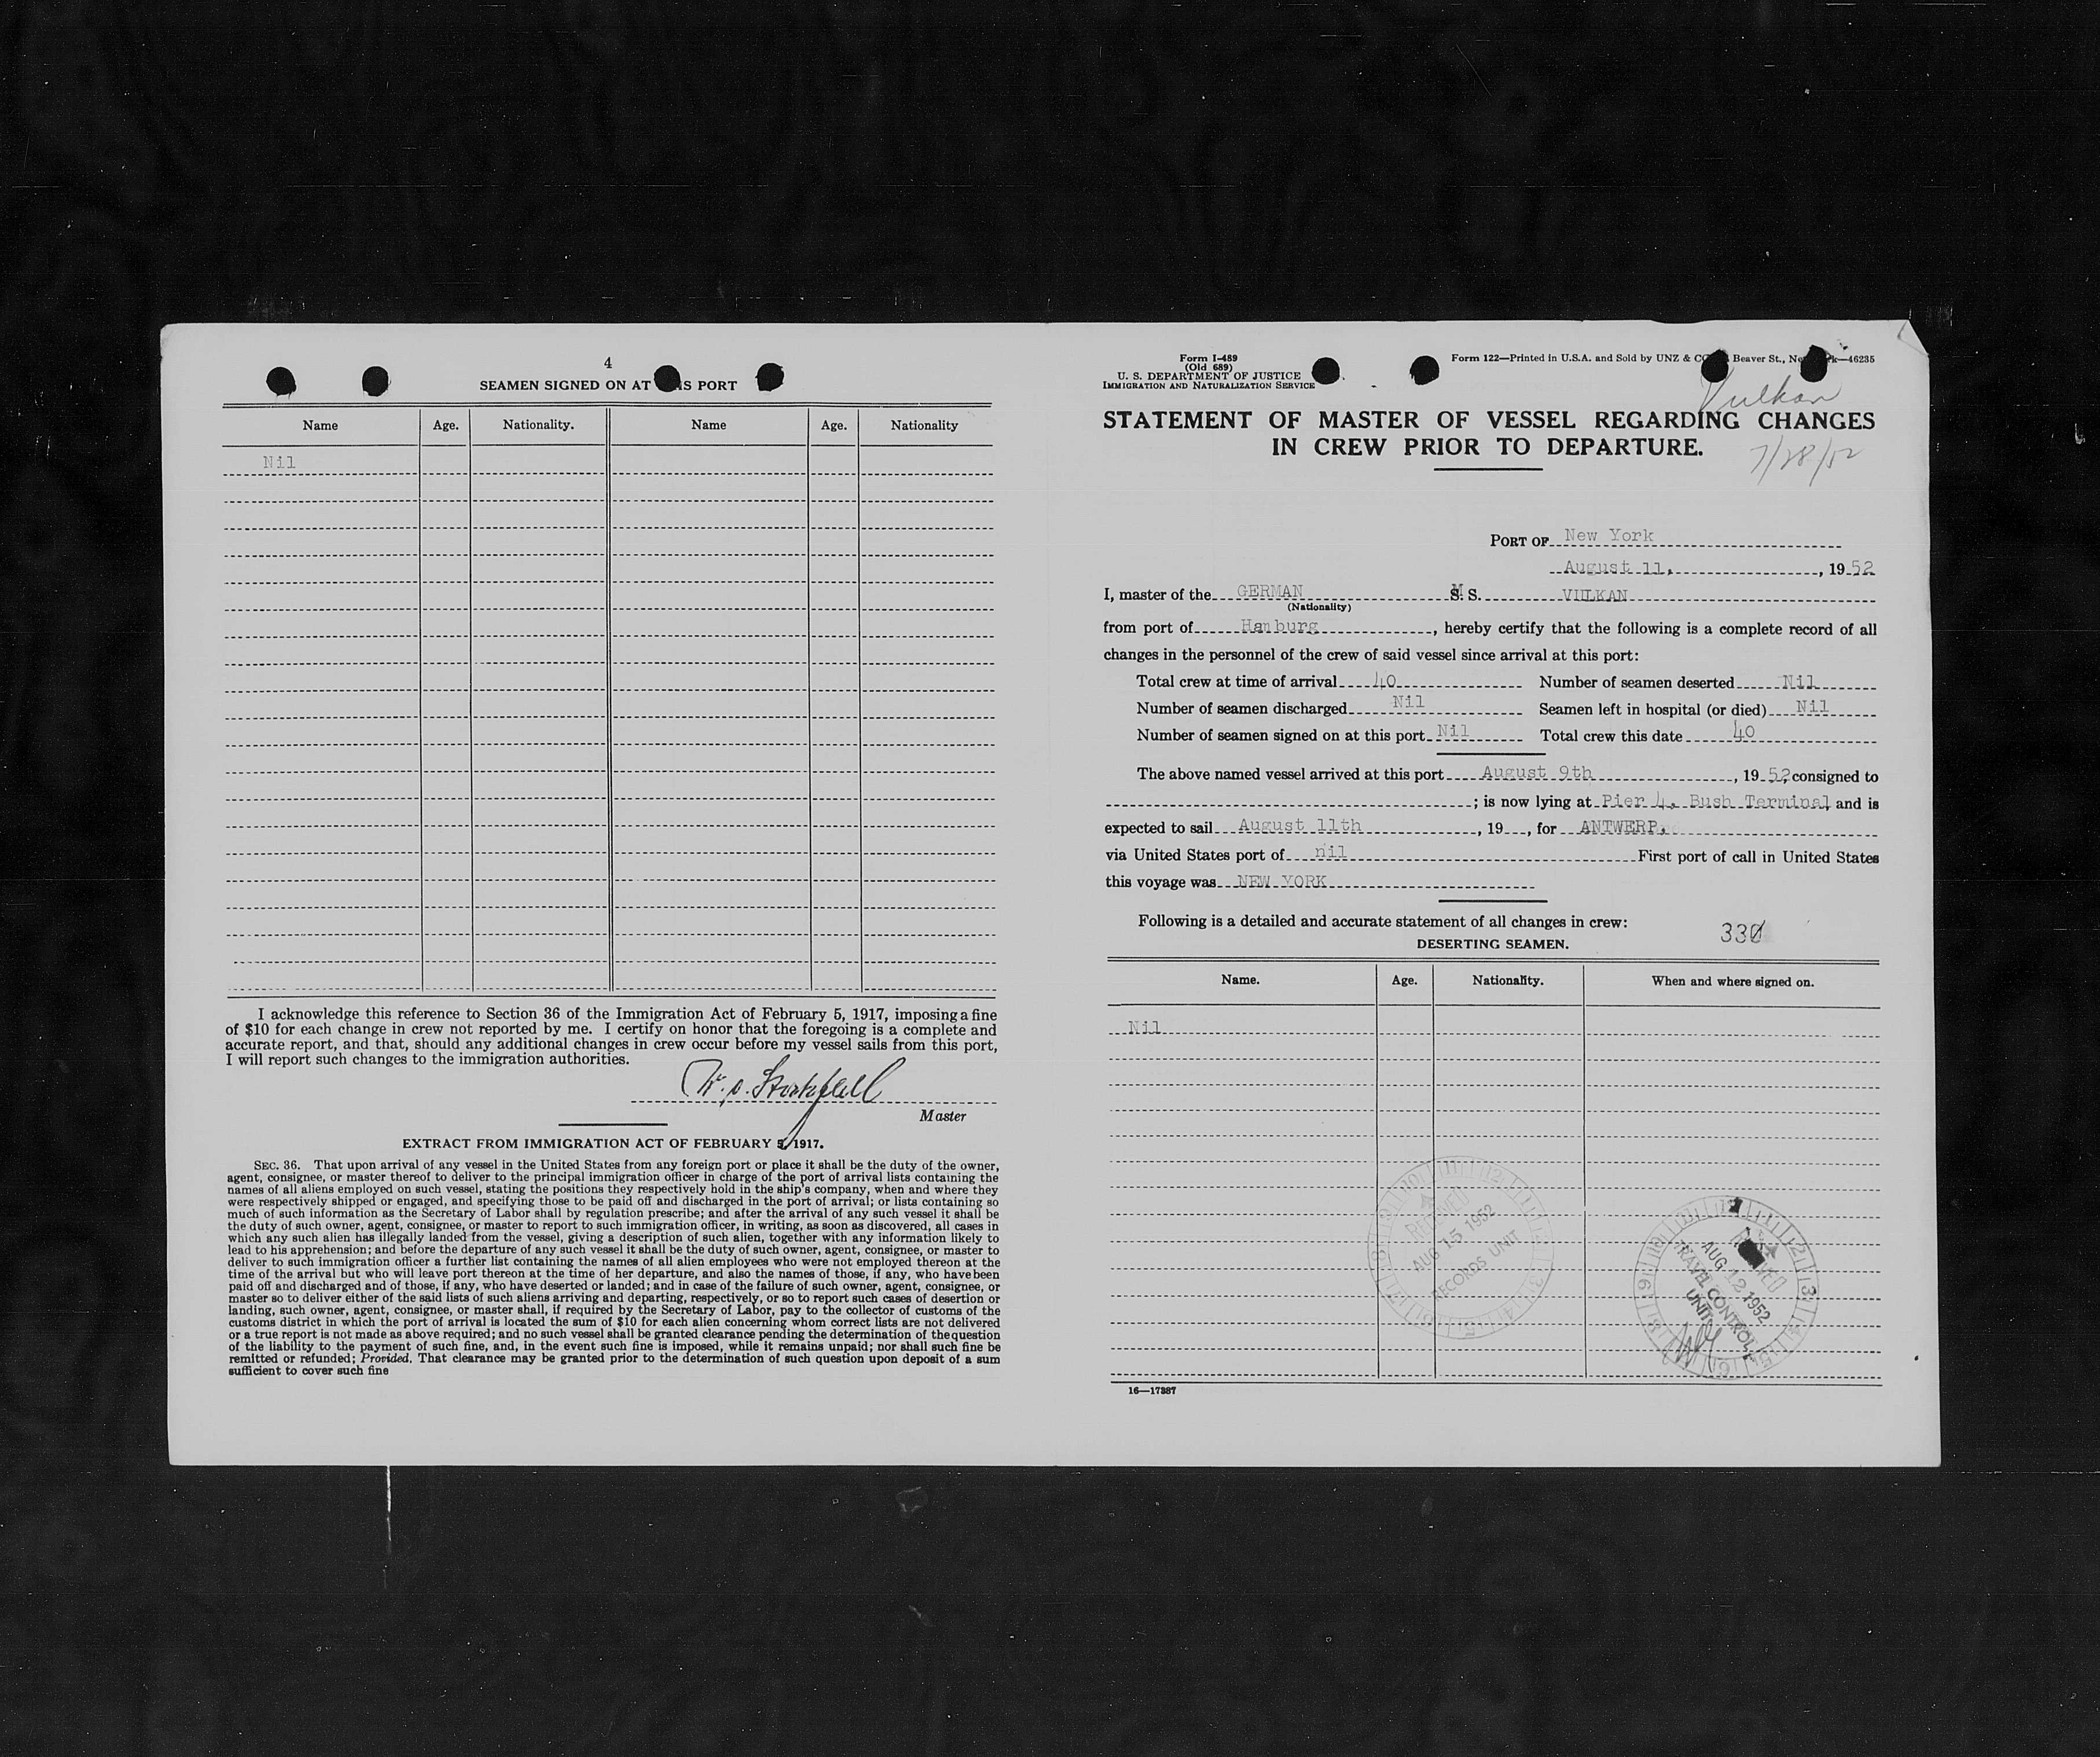 4
SEAMEN SIGNED ON AT THIS PORT
Name Age. Nationality. Name Age. Nationality
Nil
I acknowledge this reference to Section 36 of the Immigration Act of February 5, 1917, imposing a fine
of $10 for each change in crew not reported by me. I certify on honor that the foregoing is a complete and
accurate report, and that, should any additional changes in crew occur before my vessel sails from this port,
I will report such changes to the immigration authorities.
Master
EXTRACT FROM IMMIGRATION ACT OF FEBRUARY 5, 1917.
SEC. 36. That upon arrival of any vessel in the United States from any foreign port or place it shall be the duty of the owner,
agent, consignee, or master thereof to deliver to the principal immigration officer in charge of the port of arrival lists containing the
names of all aliens employed on such vessel, stating the positions they respectively hold in the ship's company, when and where they
were respectively shipped or engaged, and specifying those to be paid off and discharged in the port of arrival; or lists containing so
much of such information as the Secretary of Labor shall by regulation prescribe; and after the arrival of any such vessel it shall be
the duty of such owner, agent, consignee, or master to report to such immigration officer, in writing, as soon as discovered, all cases in
which any such alien has illegally landed from the vessel, giving a description of such alien, together with any information likely to
lead to his apprehension; and before the departure of any such vessel it shall be the duty of such owner, agent, consignee, or master to
deliver to such immigration officer a further list containing the names of all alien employees who were not employed thereon at the
time of the arrival but who will leave port thereon at the time of her departure, and also the names of those, if any, who have been
paid off and discharged and of those, if any, who have deserted or landed; and in case of the failure of such owner, agent, consignee, or
master so to deliver either of the said lists of such aliens arriving and departing, respectively, or so to report such cases of desertion or
landing, such owner, agent, consignee, or master shall, if required by the Secretary of Labor, pay to the collector of customs of the
customs district in which the port of arrival is located the sum of $10 for each alien concerning whom correct lists are not delivered
or a true report is not made as above required; and no such vessel shall be granted clearance pending the determination of the question
of the liability to the payment of such fine, and, in the event such fine is imposed, while it remains unpaid; nor shall such fine be
remitted or refunded; Provided, That clearance may be granted prior to the determination of such question upon deposit of a sum
sufficient to cover such fine
Form I-489
(Old 689)
U. S. DEPARTMENT OF JUSTICE
IMMIGRATION AND NATURALIZATION SERVICE
Form 122—Printed in U.S.A. and Sold by UNZ & CO. Beaver St., New York—46235
Vulkan
STATEMENT OF MASTER OF VESSEL REGARDING CHANGES
IN CREW PRIOR TO DEPARTURE.
7/28/52
PORT OF New York
August 11, , 1952
I, master of the GERMAN M.S. VULKAN
(Nationality)
from port of Hamburg , hereby certify that the following is a complete record of all
changes in the personnel of the crew of said vessel since arrival at this port:
Total crew at time of arrival 40 Number of seamen deserted Nil
Number of seamen discharged Nil Seamen left in hospital (or died) Nil
Number of seamen signed on at this port Nil Total crew this date 40
The above named vessel arrived at this port August 9th , 19 52 consigned to
; is now lying at Pier 4, Bush Terminal and is
expected to sail August 11th , 19 , for ANTWERP.
via United States port of nil First port of call in United States
this voyage was NEW YORK
Following is a detailed and accurate statement of all changes in crew:
330
DESERTING SEAMEN.
Name. Age. Nationality. When and where signed on.
Nil
RECEIVED
AUG 15 1952
RECORDS UNIT
RECEIVED
AUG 12 1952
TRAVEL CONTROL
UNIT
16—17387